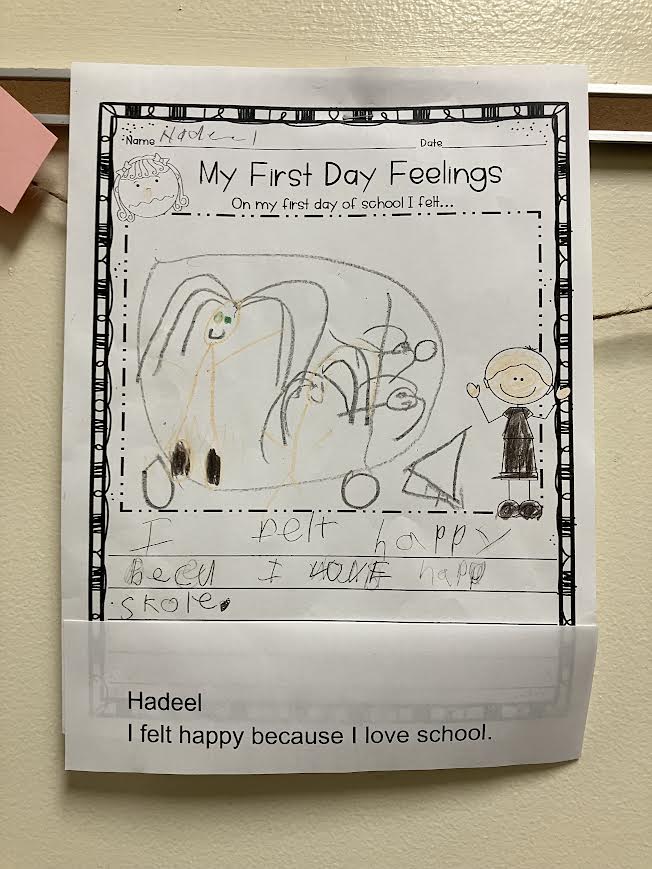 Name Hadeel Date
My First Day Feelings
On my first day of school I felt...
I felt happy
Becu I happ
skole.
Hadeel
I felt happy because I love school.